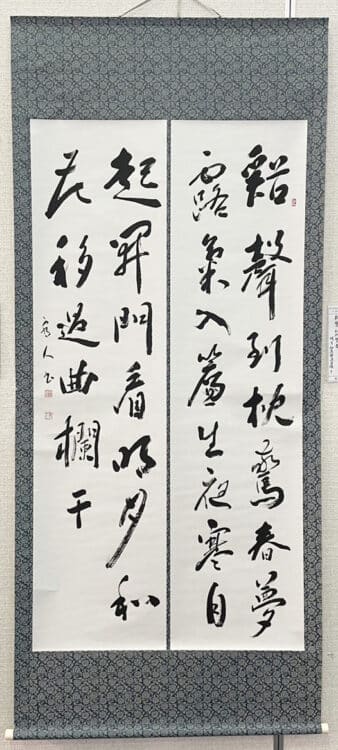 谿聲到枕驚春夢
露氣入簾生夜寒自
起開門看明月和
花移過曲欄干
人書